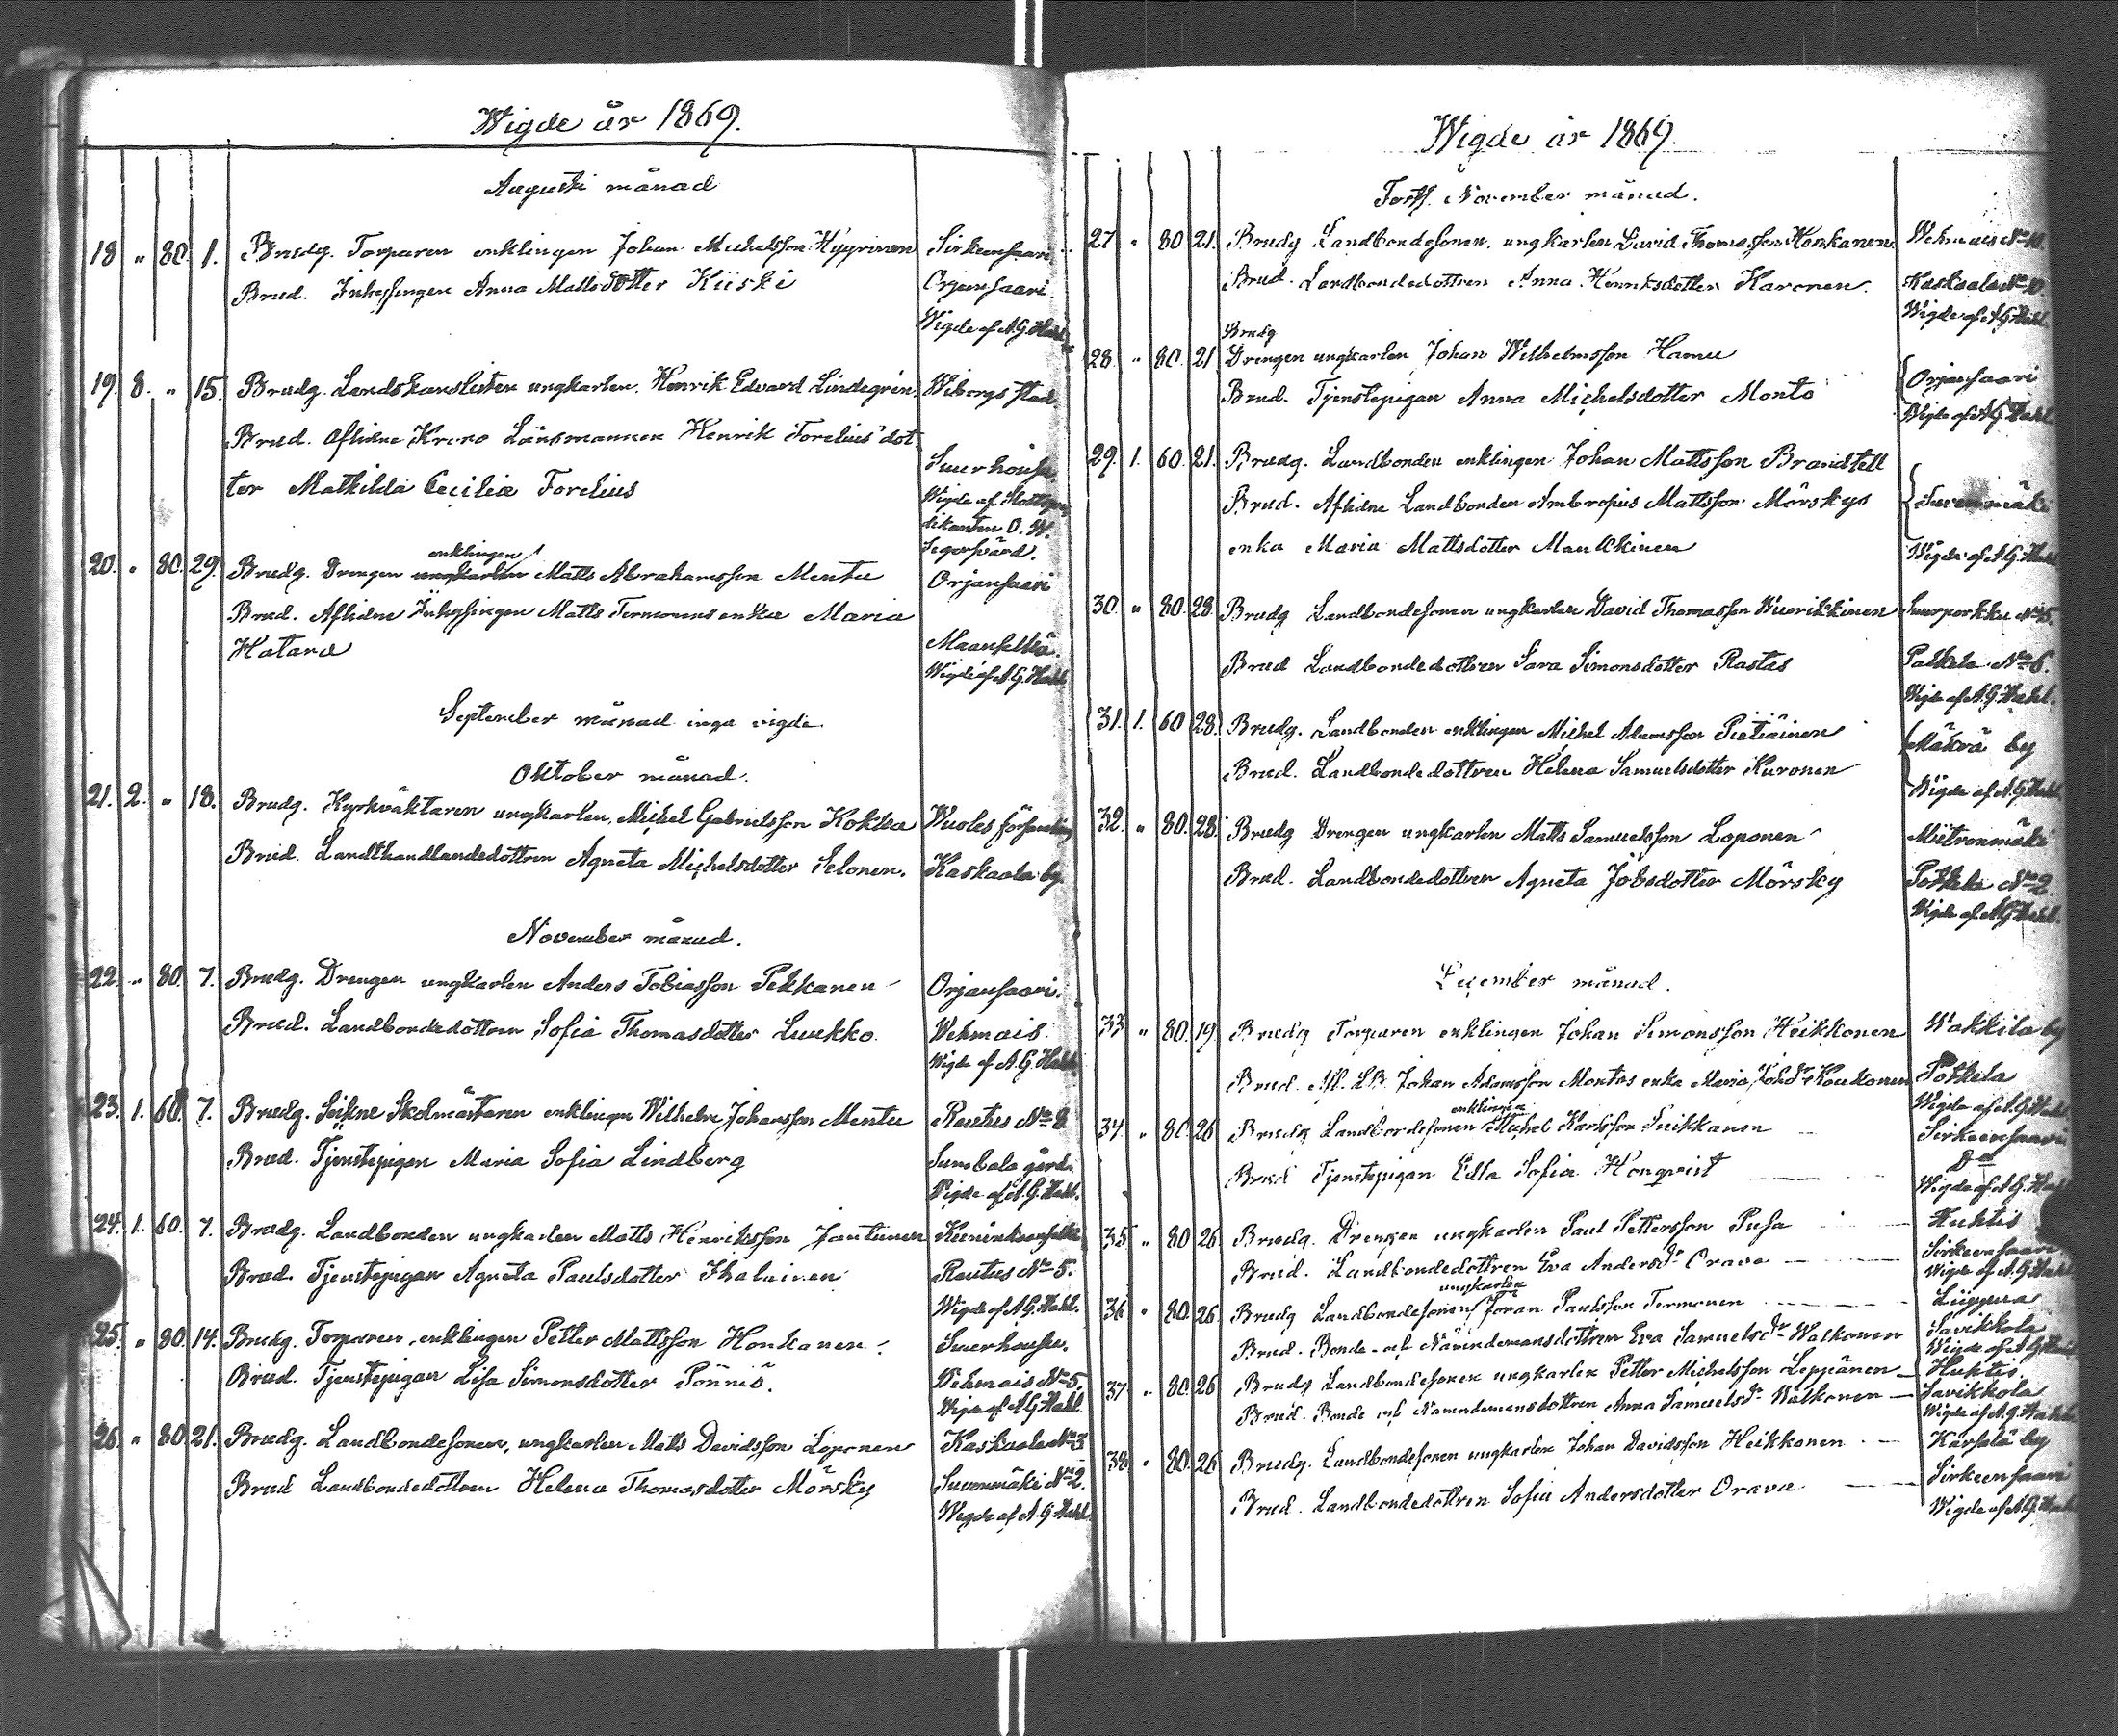 Wigde år 1869.
Augusti månad
18 " 80. 1. Brudg. Torparen enklingen Johan Michelsson Hyyrinen Sirkeensaari
Brud. Inhysingen Anna Mattsdotter Kiiski Orjansaari.
Wigde af A.G. Hahl
19. 8. " 15. Brudg. Landskanslisten ungkarlen Henrik Edvard Lindegrén. Wiborgs stad.
Brud. Aflidne Krono Länsmannen Henrik Forelius' dot
ter Mathilda Cecilia Forelius Suurhousu.
Wigde af
dikanten O. W.
Segersvärd.
enklingen
20. " 80. 29. Brudg. Drengen ungkarlen Matts Abrahamsson Mentu Orjansaari
Brud. Aflidne Inhysingen Matts Termonens enka Maria
Hatara Maanselkä.
Wigde af A.G. Hahl
September månad inga vigde.
Oktober månad.
21. 2. " 18. Brudg. Kyrkväktaren ungkarlen, Michel Gabrielsson Kokka Wuoles församling
Brud. Landthandlandedottren Agneta Michelsdotter Ilonen. Kaskaala by.
November månad.
22. " 80. 7. Brudg. Drengen ungkarlen Anders Tobiasson Pekkanen Orjansaari.
Brud. Landbondedottren Sofia Thomasdotter Luukko. Wehmais.
Wigde af A.G. Hahl
23. 1. 60. 7. Brudg. Sockne Skolmästaren enklingen Wilhelm Johansson Mentu Rautus No 8
Brud. Tjenstepigan Maria Sofia Lindberg Sumbala gård.
Wigde af A.G. Hahl.
24. 1. 60. 7. Brudg. Landbonden ungkarlen Matts Henriksson Jantunen
Brud. Tjenstepigan Agneta Paulsdotter Ihalainen Rautus No 5.
Wigde af A.G. Hahl.
25. " 80. 14. Brudg. Torparen, enklingen Petter Mattsson Honkanen. Suurhousu.
Brud. Tjenstepigan Lisa Simonsdotter Pönniö. Wehmais No 5.
Wigde af A G Hahl.
26. " 80. 21. Brudg. Landbondesonen, ungkarlen Matts Davidsson Loponen Kaskaala No 3
Brud Landbondedottren Helena Thomasdotter Mörsky Suvenmäki No 2.
Wigde af A. G Hahl.
Wigde år 1869.
Forts. November månad.
27 " 80 21. Brudg Landbondesonen, ungkarlen David Thomasson Honkanen Wehmais No 10.
Brud. Landbondedottren Anna Henriksdotter Karonen. Kaskaala No 10.
Wigde af A G Hahl.
Brudg
28. " 80. 21 Drengen ungkarlen Johan Wilhelmsson Hamu
Brud. Tjenstepigan Anna Michelsdotter Monto Orjansaari
Wigde af A G Hahl
29. 1. 60. 21. Brudg. Landbonden enklingen Johan Mattsson Brandtell
Brud. Aflidne Landbonden Ambrosius Mattsson Mörskys Suvenmäki
enka Maria Mattsdotter Manckinen Wigde af A G. Hahl
30. " 80. 28. Brudg Landbondesonen ungkarlen David Thomasson Wuorikkinen Suurporkku No 5.
Brud Landbondedottren Sara Simonsdotter Rastas Palkela No 6.
Wigde af A.G. Hahl.
31. 1. 60 28. Brudg. Landbonden enklingen Michel Adamsson Pietiäinen
Brud. Landbondedottren Helena Samuelsdotter Kuronen Mäkrä by
Wigde af A.G. Hahl.
32. " 80. 28. Brudg Drengen ungkarlen Matts Samuelsson Loponen Miitronmäki
Brud. Landbondedottren Agneta Jobsdotter Mörsky Potkela No 2
Wigde af A G Hahl.
December månad.
33 " 80 19. Brudg Torparen enklingen Johan Simonsson Heikkonen Wakkila by
Brud. Afl. LB. Johan Adamsson Montos enka Maria Joh.dr Koukonen Potkela
Wigde af A. G Hahl
enklingen
34. " 80. 26 Brudg Landbondesonen Michel Karlsson Suikkanen Sirkeensaari
Brud Tjenstepigan Edla Sofia Honqvist Do
Wigde af A G. Hahl
35 " 80 26 Brudg. Drengen ungkarlen Paul Pettersson Pusa Huhtis
Brud. Landbondedottren Eva Andersdr Orava Sirkeensaari.
Wigde af A. G. Hahl
ungkarlen
36 " 80. 26 Brudg Landbondesonen Joran Paulsson Termonen Liippua
Brud. Bonde och Nämndemansdottren Eva Samuelsdr Walkonen Savikkola
Wigde af A G Hahl
37 " 80. 26 Brudg Landbondesonen ungkarlen Petter Michelsson Leppänen Huhtis
Brud. Bonde och Nämndemansdottren Anna Samuelsdr Walkonen Savikkola
Wigde af A. G. Hahl
38 " 80. 26 Brudg. Landbondesonen ungkarlen Johan Davidsson Heikkonen Karsala by
Brud. Landbondedottren Sofia Andersdotter Orava Sirkeensaari
Wigde af A G. Hahl